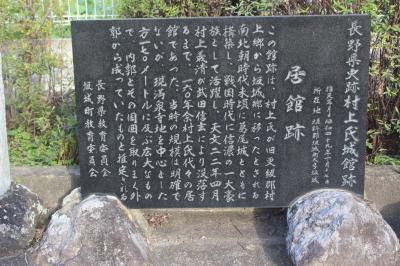 長野県史跡村上氏城館跡
居館跡
指定年月日 昭和四十九年一月十七日
所在地 埴科郡坂城町大字坂城
この館跡は、村上氏が旧更級郡村
上郷から坂城郷に移ったとされる
南北朝時代末頃に葛尾城とともに
構築し、戦国時代に信濃の一大豪
族として活躍し、天文二二年四月
村上義清が武田信玄により没落す
るまで、一六〇年余村上氏代々の居
館であった。当時の規模は明確で
ないが、現満泉寺地を中心とした
方一七〇メートルに及ぶ広大なもの
で、内郭とその周囲を取りまく外
郭から成っていたものと推定される
長野県教育委員会
坂城町教育委員会